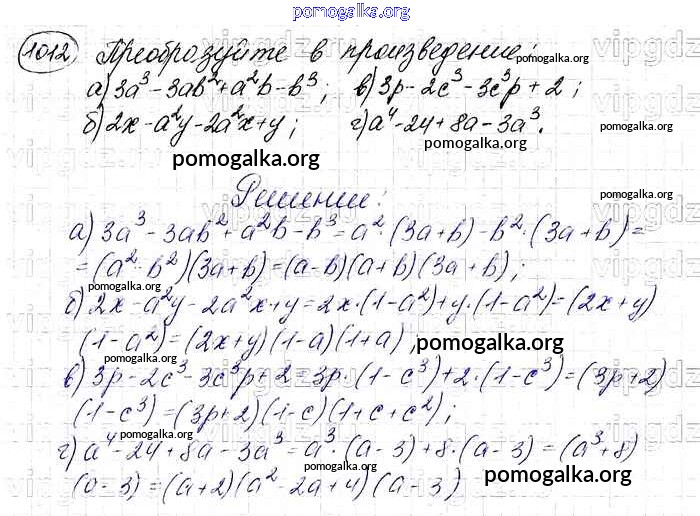 pomogalka.org
1012 Преобразуйте в произведение:
а) 3a³ - 3ab² + a²b - b³; в) 3p - 2c³ - 3c³p + 2;
б) 2x - a²y - 2a²x + y; г) a⁴ - 24 + 8a - 3a³.
pomogalka.org pomogalka.org
Решение:
pomogalka.org
а) 3a³ - 3ab² + a²b - b³ = a² · (3a + b) - b² · (3a + b) =
= (a² - b²)(3a + b) = (a - b)(a + b)(3a + b);
pomogalka.org pomogalka.org
б) 2x - a²y - 2a²x + y = 2x · (1 - a²) + y · (1 - a²) = (2x + y)
(1 - a²) = (2x + y)(1 - a)(1 + a),
pomogalka.org
pomogalka.org
в) 3p - 2c³ - 3c³p + 2 = 3p · (1 - c³) + 2 · (1 - c³) = (3p + 2)
(1 - c³) = (3p + 2)(1 - c)(1 + c + c²);
pomogalka.org
г) a⁴ - 24 + 8a - 3a³ = a³ · (a - 3) + 8 · (a - 3) = (a³ + 8)
pomogalka.org
(a - 3) = (a + 2)(a² - 2a + 4)(a - 3)
pomogalka.org